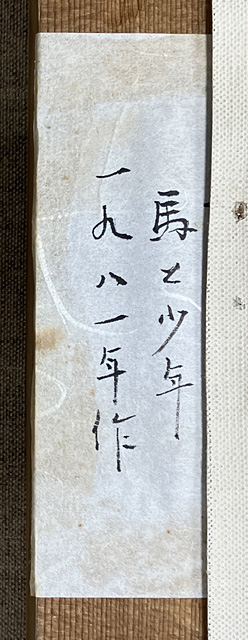 馬と少年
一九八一年作